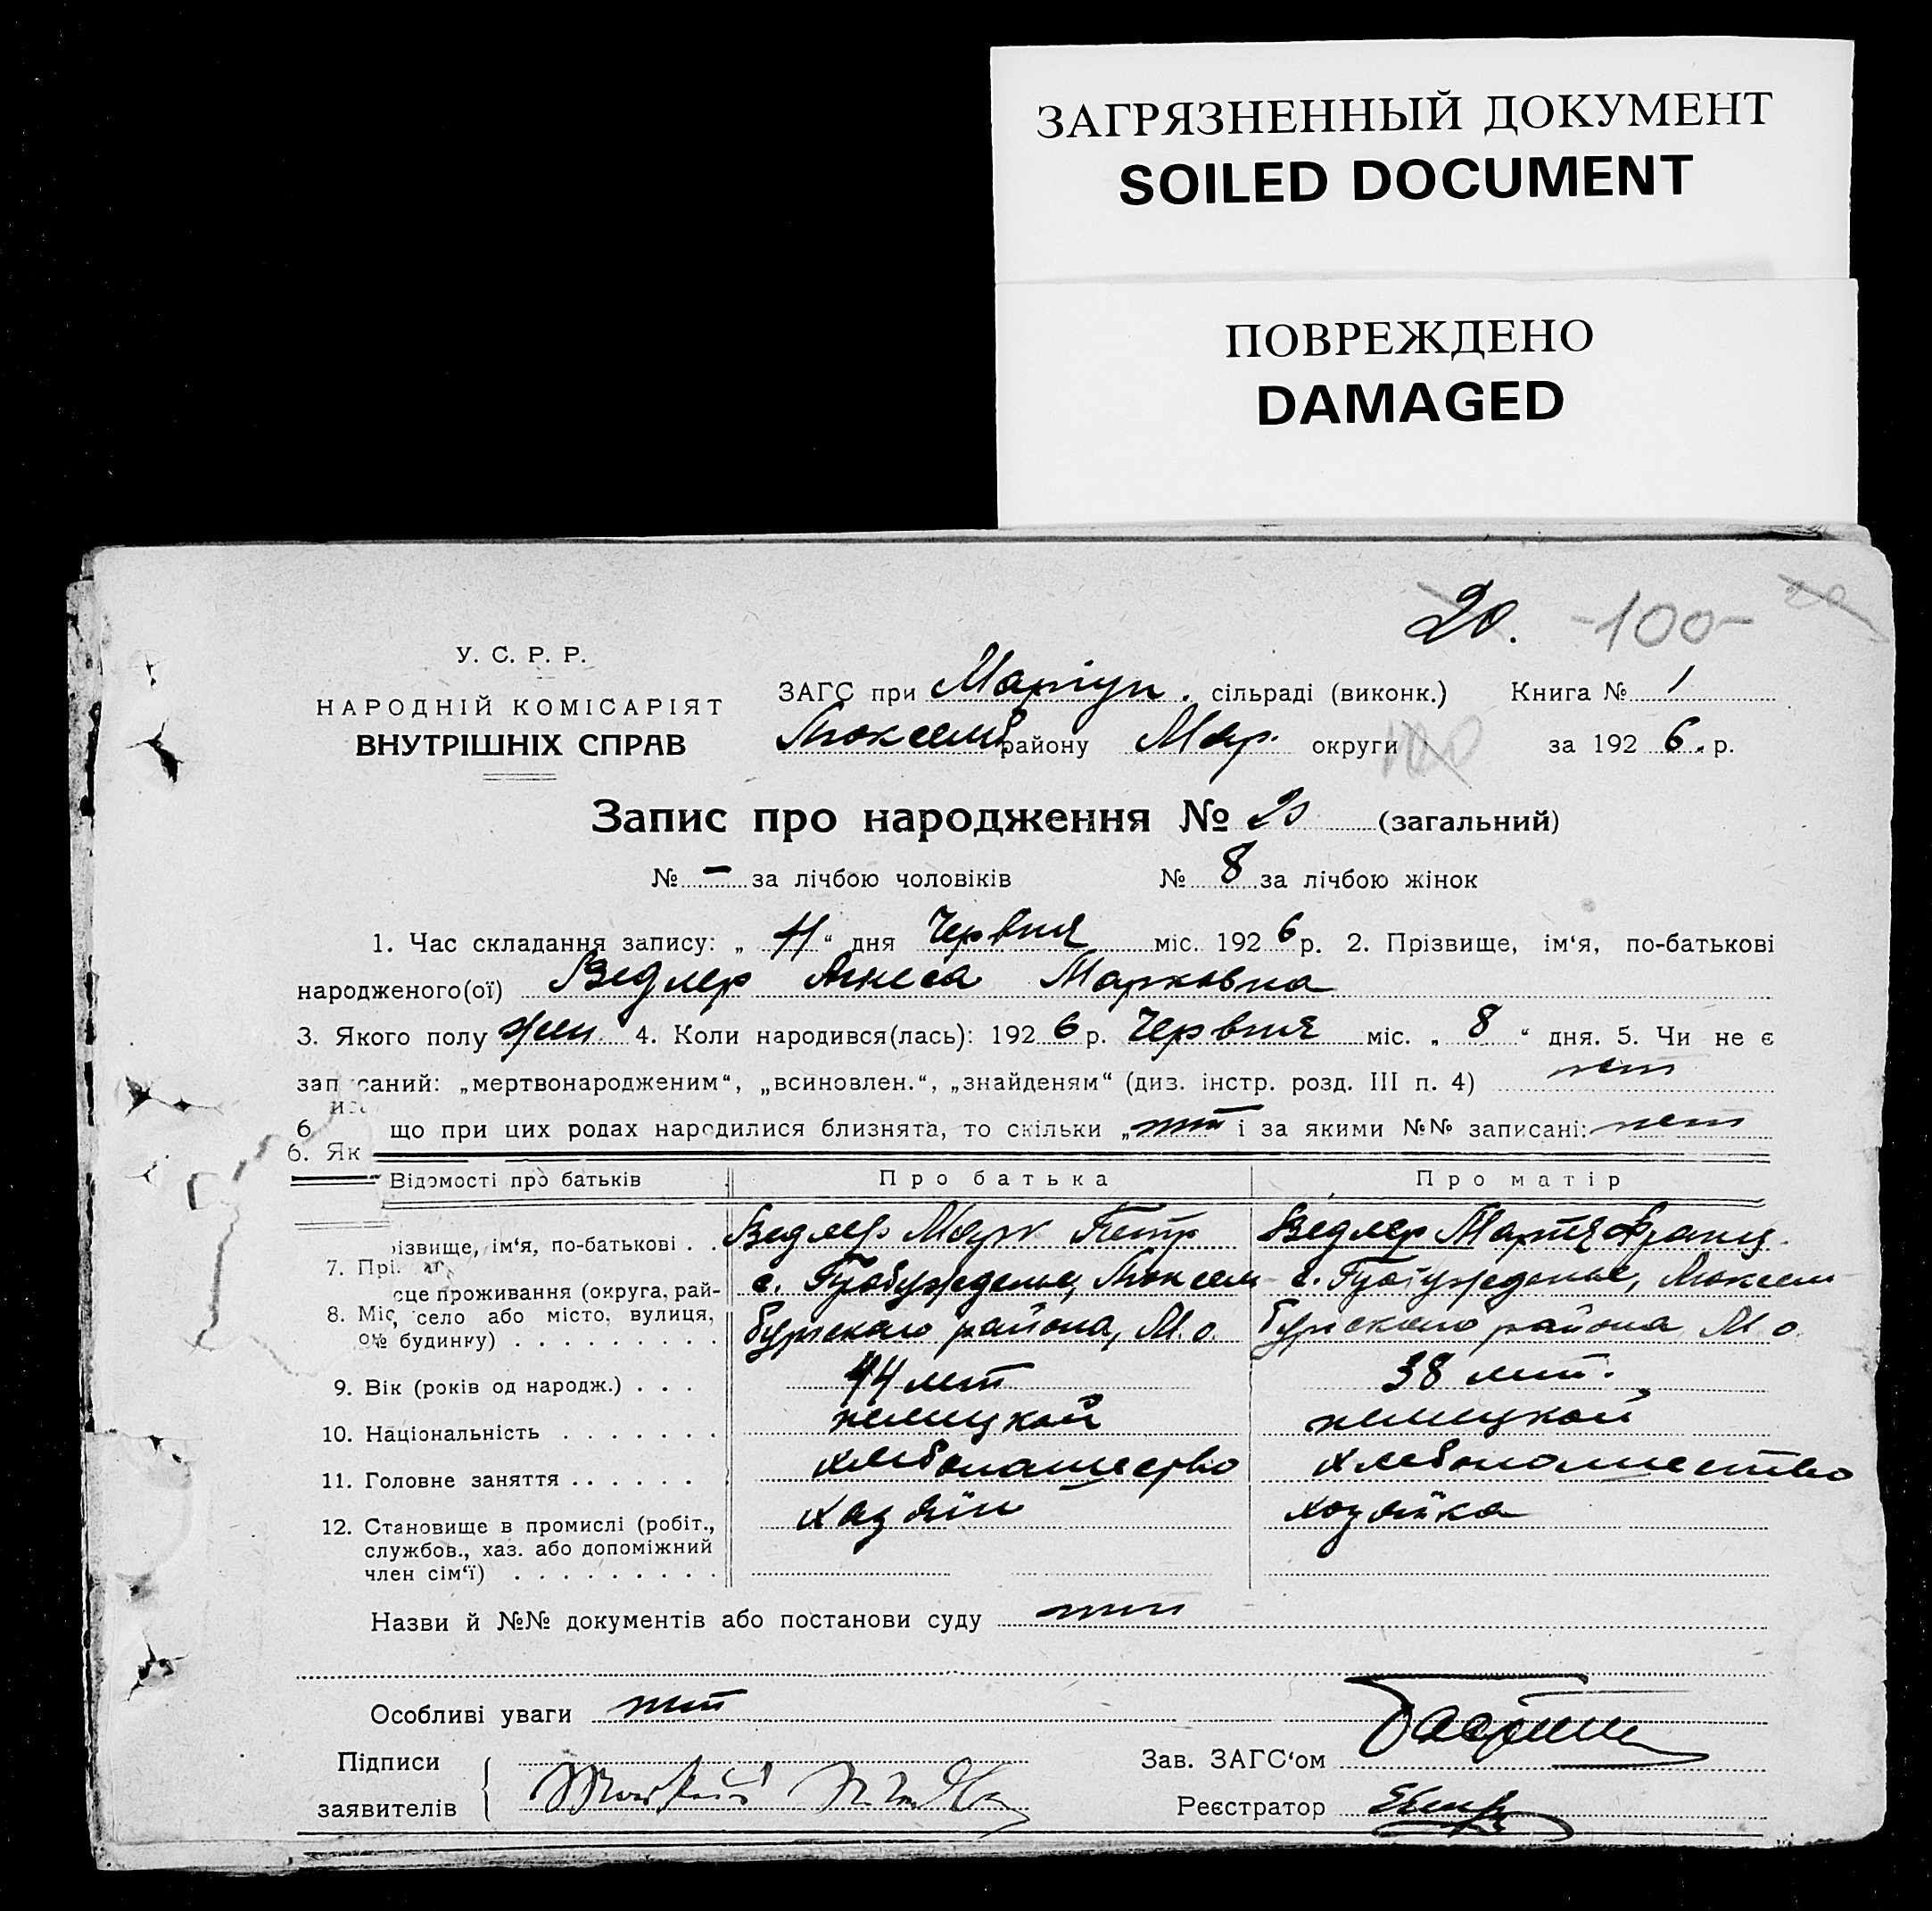 ЗАГРЯЗНЕННЫЙ ДОКУМЕНТ
SOILED DOCUMENT
ПОВРЕЖДЕНО
DAMAGED
20. -100- 20
У. С. Р. Р.
НАРОДНІЙ КОМІСАРІЯТ
ВНУТРІШНІХ СПРАВ
ЗАГС при Мартун. сільраді (виконк.) Книга № 1
Люксемб району Мар. округи 100 за 1926.р.
Запис про народження № 20 (загальний)
№ – за лічбою чоловіків № 8 за лічбою жінок
1. Час складання запису: „11“ дня Червня міс. 1926р. 2. Прізвище, ім‘я, по-батькові
народженого(ої) Ведлер Агнеса Марковна
3. Якого полу жен. 4. Коли народився(лась): 1926р. Червня міс. „8“ дня. 5. Чи не є
записаний: „мертвонародженим“, „всиновлен.“, „знайденям“ (диз. інстр. розд. III п. 4) нет
6. Як що при цих родах народилися близнята, то скільки „нет і за якими №№ записані: нет
Відомості про батьків Про батька Про матір
7. Прізвище, ім‘я, по-батькові . . Ведлер Марк Петр Ведлер Марія Франц.
8. Місце проживання (округа, рай-
село або місто, вулиця,
№ будинку) . . . . . . . . .
с. Люксем-
бургского района, М.о.
с. Люксем-
бургского района М.о.
9. Вік (років од народж.) . . . 44 лет 38 лет.
10. Національність . . . . . . . немецкой немецкой
11. Головне заняття . . . . . . хлебопашество хлебопашество
12. Становище в промислі (робіт., хазяїн хозяйка
службов., хаз. або допоміжний
член сім‘ї) . . . . . . . . .
Назви й №№ документів або постанови суду нет
Особливі уваги нет
Підписи
заявителів
Зав. ЗАГС‘ом
Реєстратор